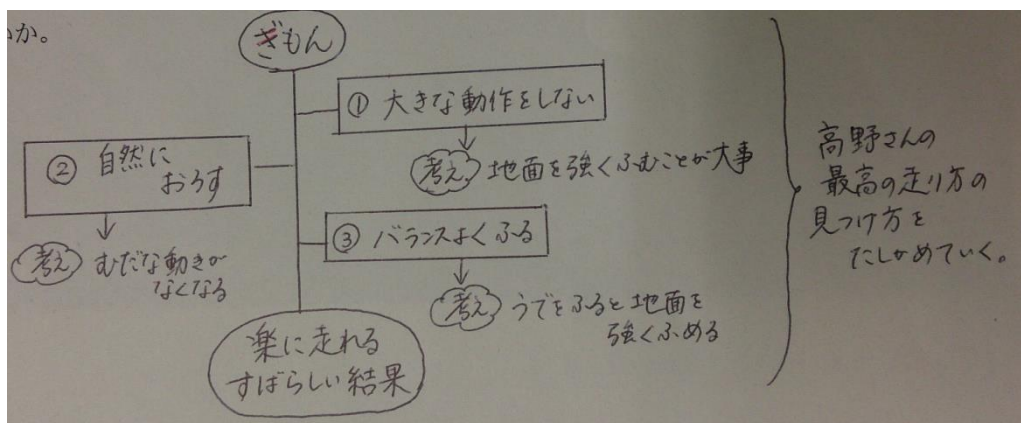 いか。
ぎもん
① 大きな動作をしない
考え 地面を強くふむことが大事
② 自然に
おろす
考え むだな動きが
なくなる
③ バランスよくふる
考え うでをふると地面を
強くふめる
楽に走れる
すばらしい結果
高野さんの
最高の走り方の
見つけ方を
たしかめていく。